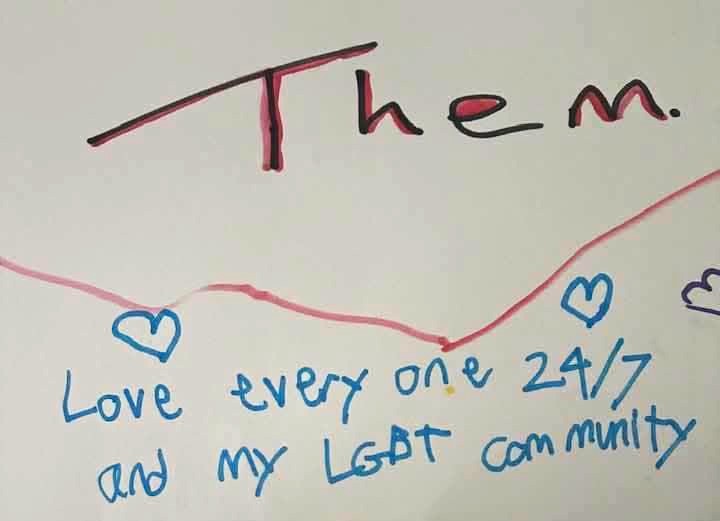 Them.
Love every one 24/7
and my LGBT community